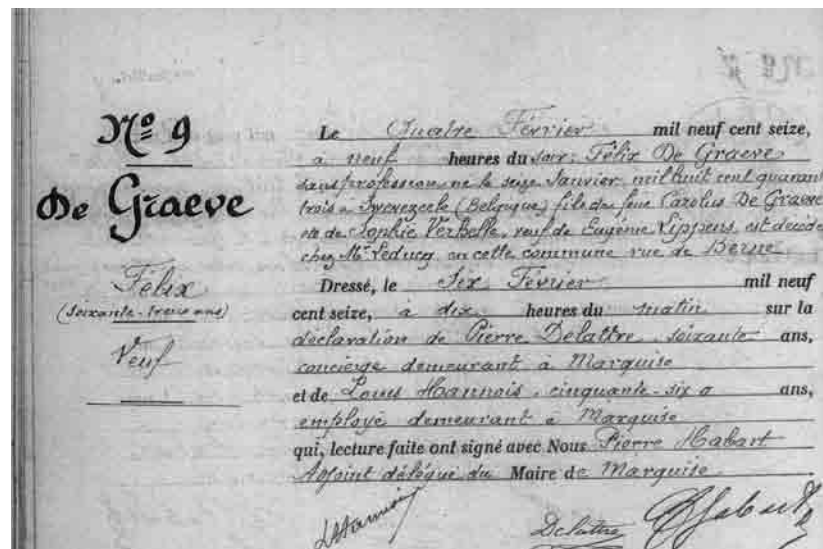 Nº 9
De Graeve
Félix
(soixante-treize ans)
Veuf
Le Quatre Février mil neuf cent seize,
à neuf heures du soir, Félix De Graeve
sans profession, né le seize Janvier mil huit cent quarant
trois à (Belgique) fils de feu Carolus De Graeve
et de Sophie veuf de Eugénie Lippens, est décédé
chez Mr Leducq, en cette commune rue de Berne
Dressé, le Six Février mil neuf
cent seize, à dix heures du matin sur la
déclaration de Pierre Delattre, soixante ans,
concierge demeurant à Marquise
et de Louis Hannois, cinquante-six ans,
employé demeurant à Marquise
qui, lecture faite ont signé avec Nous Pierre Habart
Adjoint délégué du Maire de Marquise.
Delattre